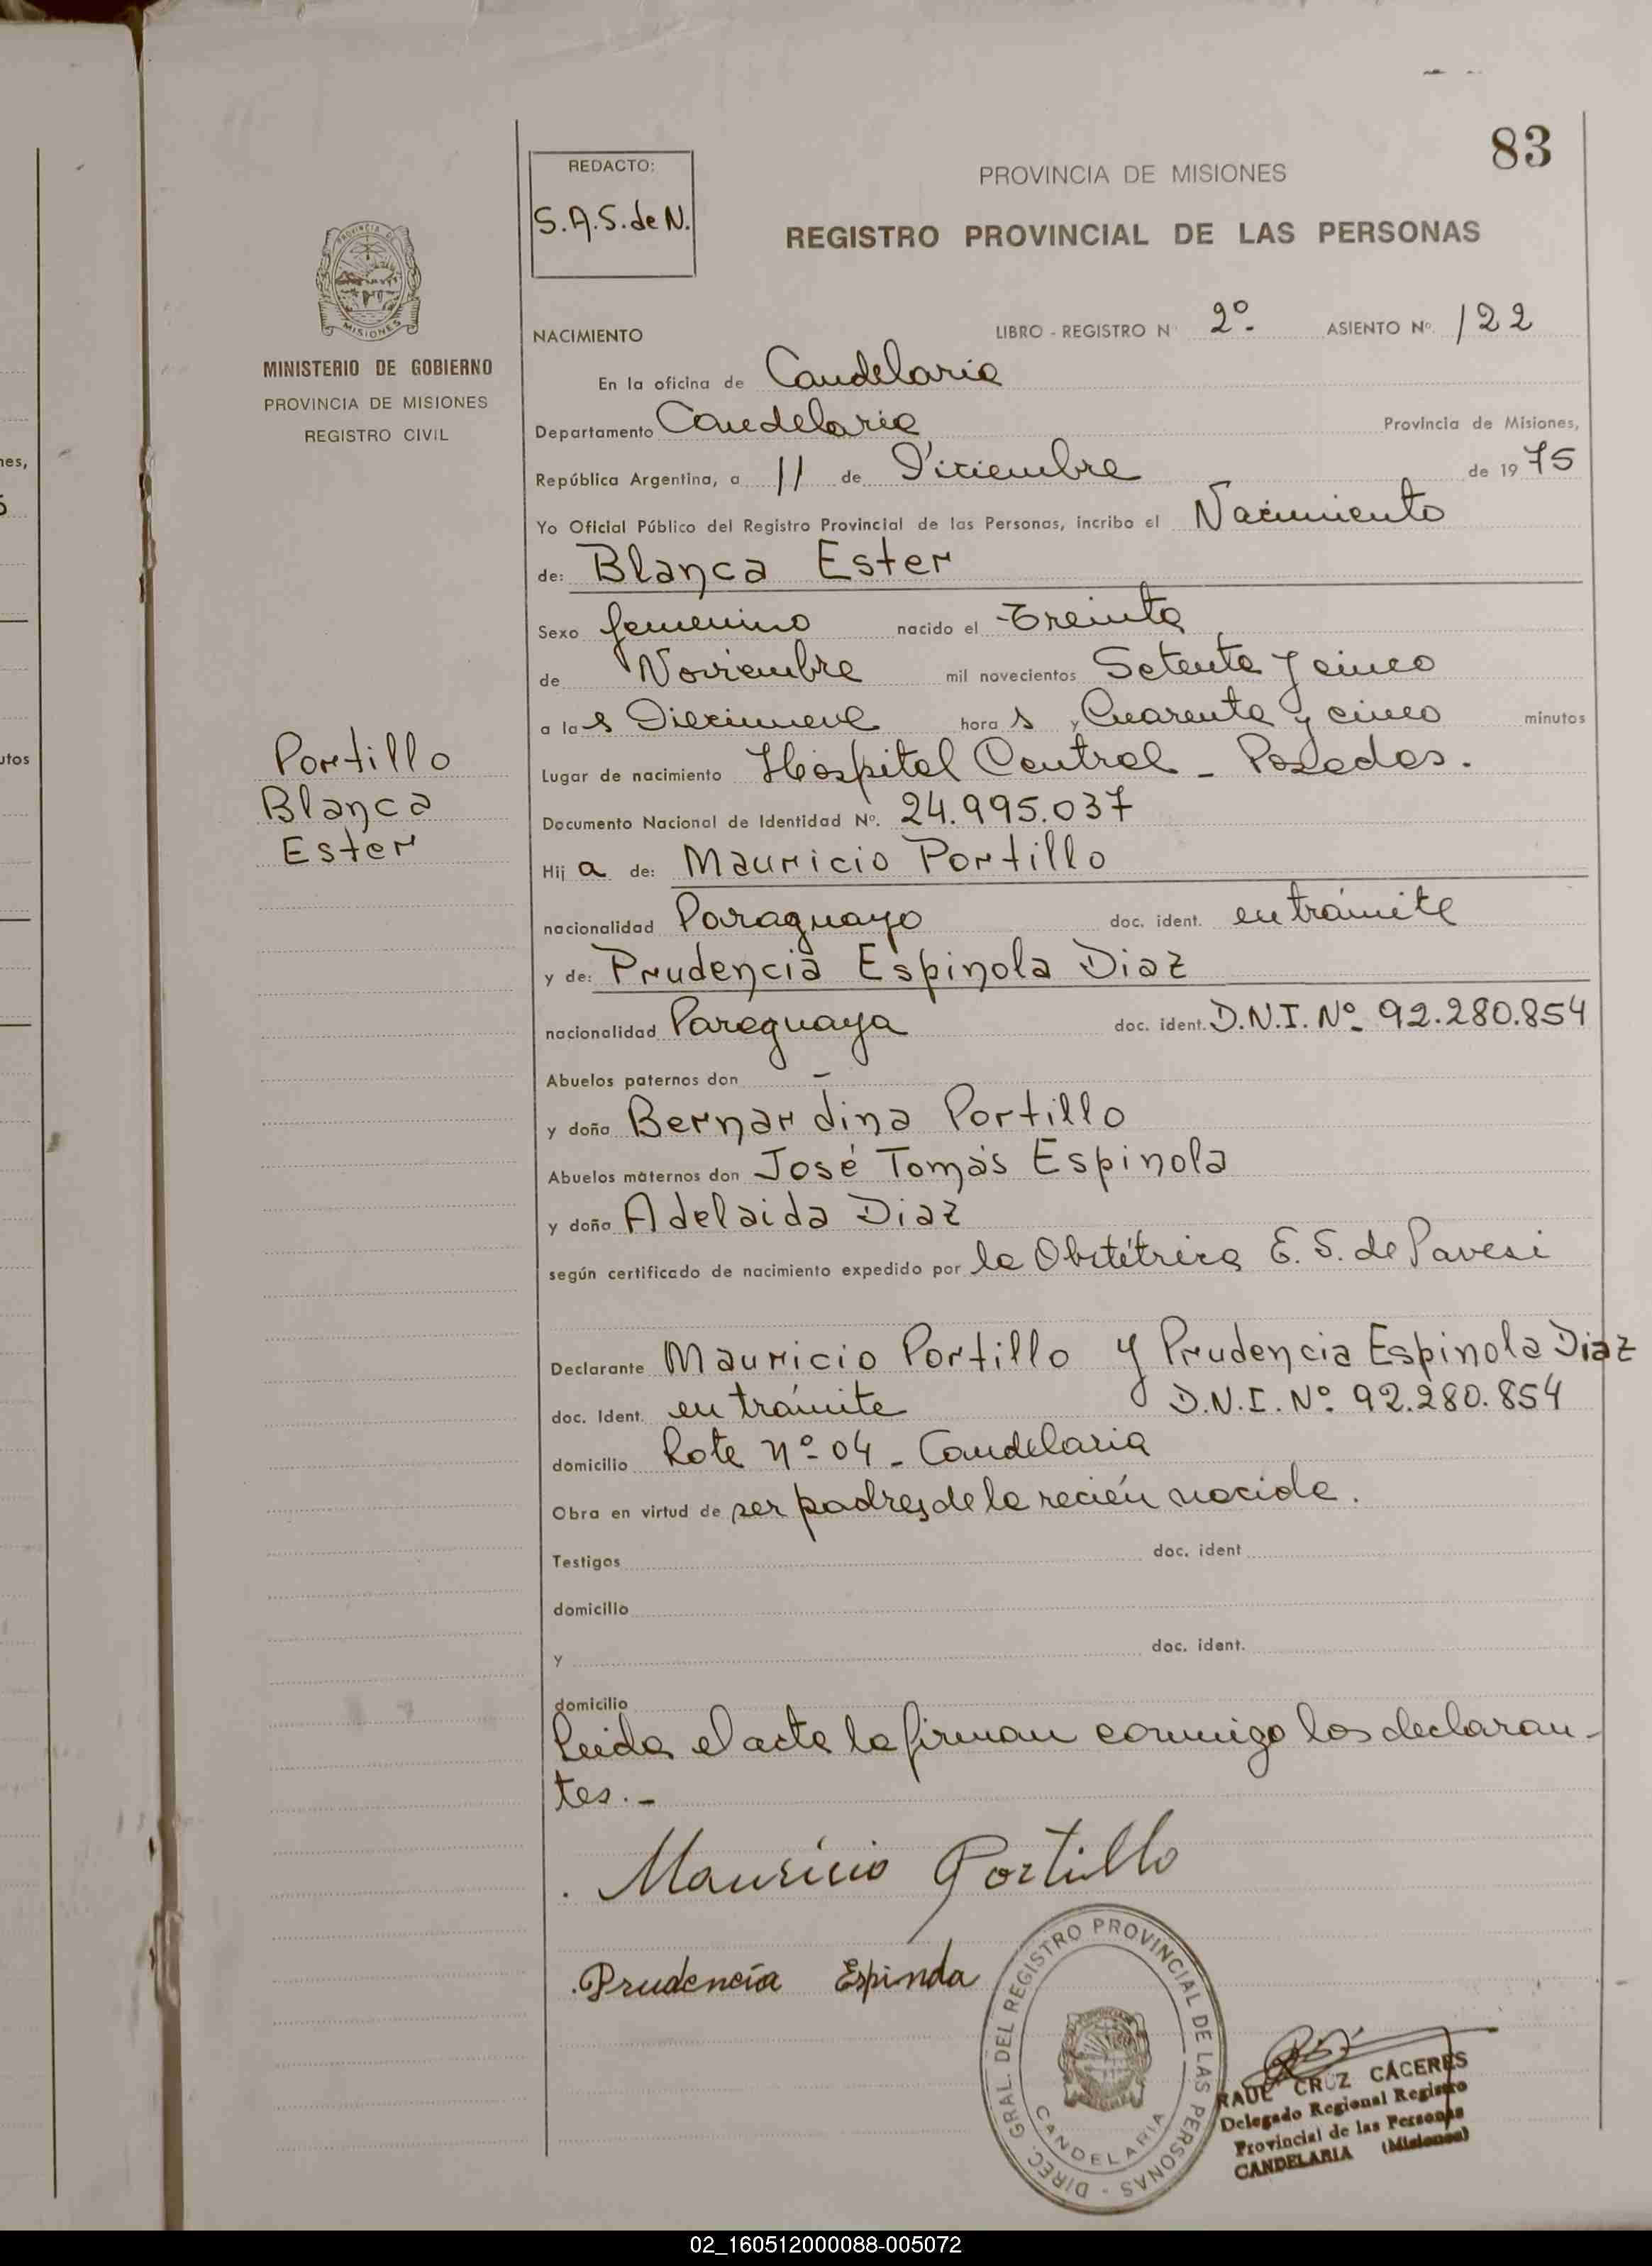 83
REDACTO:
S.A.S. de N.
PROVINCIA DE MISIONES
REGISTRO PROVINCIAL DE LAS PERSONAS
PROVINCIA DE
MISIONES
MINISTERIO DE GOBIERNO
PROVINCIA DE MISIONES
REGISTRO CIVIL
NACIMIENTO LIBRO - REGISTRO N° 2º- ASIENTO Nº. 122
En la oficina de Candelaria
Departamento Candelaria Provincia de Misiones,
República Argentina, a 11 de Diciembre de 1975
Yo Oficial Público del Registro Provincial de las Personas, incribo el Nacimiento
de: Blanca Ester
Sexo femenino nacido el Treinta
de Noviembre mil novecientos Setenta y cinco
a las Diecinueve horas y Cuarenta y cinco minutos
Lugar de nacimiento Hospital Central - Posadas.
Documento Nacional de Identidad Nº. 24.995.037
Hija de: Mauricio Portillo
nacionalidad Paraguayo doc. ident. en trámite
y de: Prudencia Espinola Diaz
nacionalidad Paraguaya doc. ident. D.N.I. Nº 92.280.854
Abuelos paternos don -
y doña Bernardina Portillo
Abuelos maternos don José Tomás Espinola
y doña Adelaida Diaz
según certificado de nacimiento expedido por la Obstétrica E. S. de Pavesi
Declarante Mauricio Portillo y Prudencia Espinola Diaz
doc. Ident. en trámite D.N.I. Nº 92.280.854
domicilio Lote nº 04 - Candelaria
Obra en virtud de ser padres de la recién nacida.
Testigos doc. ident
domicilio
y doc. ident.
domicilio
Leida el acta la firman conmigo los declaran-
tes.-
Portillo
Blanca
Ester
Mauricio Portillo
Prudencia Espinola
DIREC. GRAL. DEL REGISTRO PROVINCIAL DE LAS PERSONAS -
CANDELARIA
RAUL CRUZ CÁCERES
Delegado Regional Registro
Provincial de las Personas
CANDELARIA (Misiones)
nes,
5
utos
02_160512000088-005072